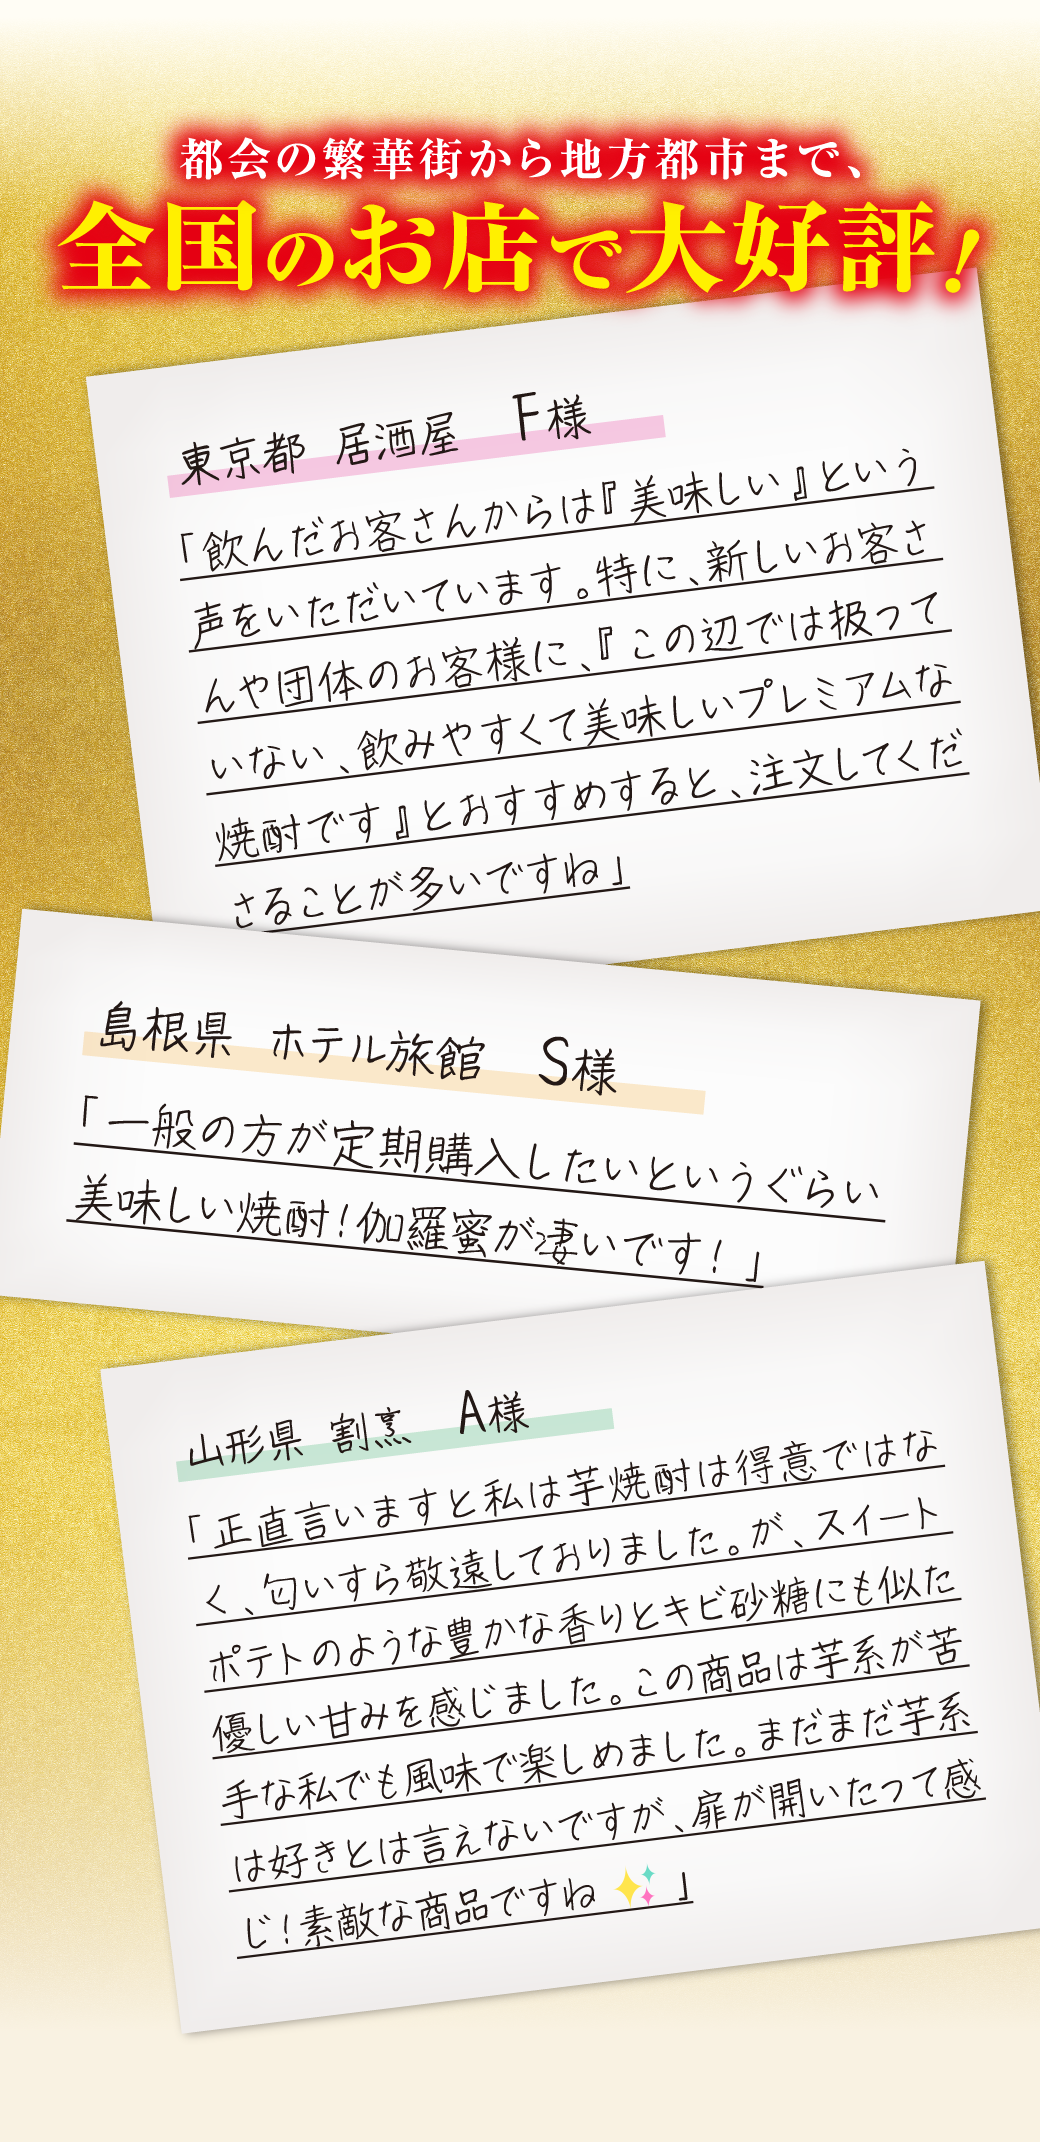 都会の繁華街から地方都市まで、
全国のお店で大好評!
東京都 居酒屋 F様
「飲んだお客さんからは『美味しい』という
声をいただいています。特に、新しいお客さ
んや団体のお客様に、『この辺では扱って
いない、飲みやすくて美味しいプレミアムな
焼酎です』とおすすめすると、注文してくだ
さることが多いですね」
島根県 ホテル旅館 S様
「一般の方が定期購入したいというぐらい
美味しい焼酎!伽羅蜜が凄いです!」
山形県 割烹 A様
「正直言いますと私は芋焼酎は得意ではな
く、匂いすら敬遠しておりました。が、スイート
ポテトのような豊かな香りとキビ砂糖にも似た
優しい甘みを感じました。この商品は芋系が苦
手な私でも風味で楽しめました。まだまだ芋系
は好きとは言えないですが、扉が開いたって感
じ!素敵な商品ですね✨」